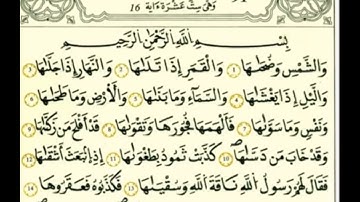 وَهِيَ سِتَّ عَشْرَةَ ءَايَة 16
بِسْمِ اللَّهِ الرَّحْمَٰنِ الرَّحِيمِ
وَالشَّمْسِ وَضُحَىٰهَا 1 وَالْقَمَرِ إِذَا تَلَىٰهَا 2 وَالنَّهَارِ إِذَا جَلَّىٰهَا 3
وَالَّيْلِ إِذَا يَغْشَىٰهَا 4 وَالسَّمَآءِ وَمَا بَنَىٰهَا 5 وَالْأَرْضِ وَمَا طَحَىٰهَا 6
وَنَفْسٍ وَمَا سَوَّىٰهَا 7 فَأَلْهَمَهَا فُجُورَهَا وَتَقْوَىٰهَا 8 قَدْ أَفْلَحَ مَن زَكَّىٰهَا 9
وَقَدْ خَابَ مَن دَسَّىٰهَا 10 كَذَّبَتْ ثَمُودُ بِطَغْوَىٰهَا 11 إِذِ انۢبَعَثَ أَشْقَىٰهَا 12
فَقَالَ لَهُمْ رَسُولُ اللَّهِ نَاقَةَ اللَّهِ وَسُقْيَىٰهَا 13 فَكَذَّبُوهُ فَعَقَرُوهَا 14